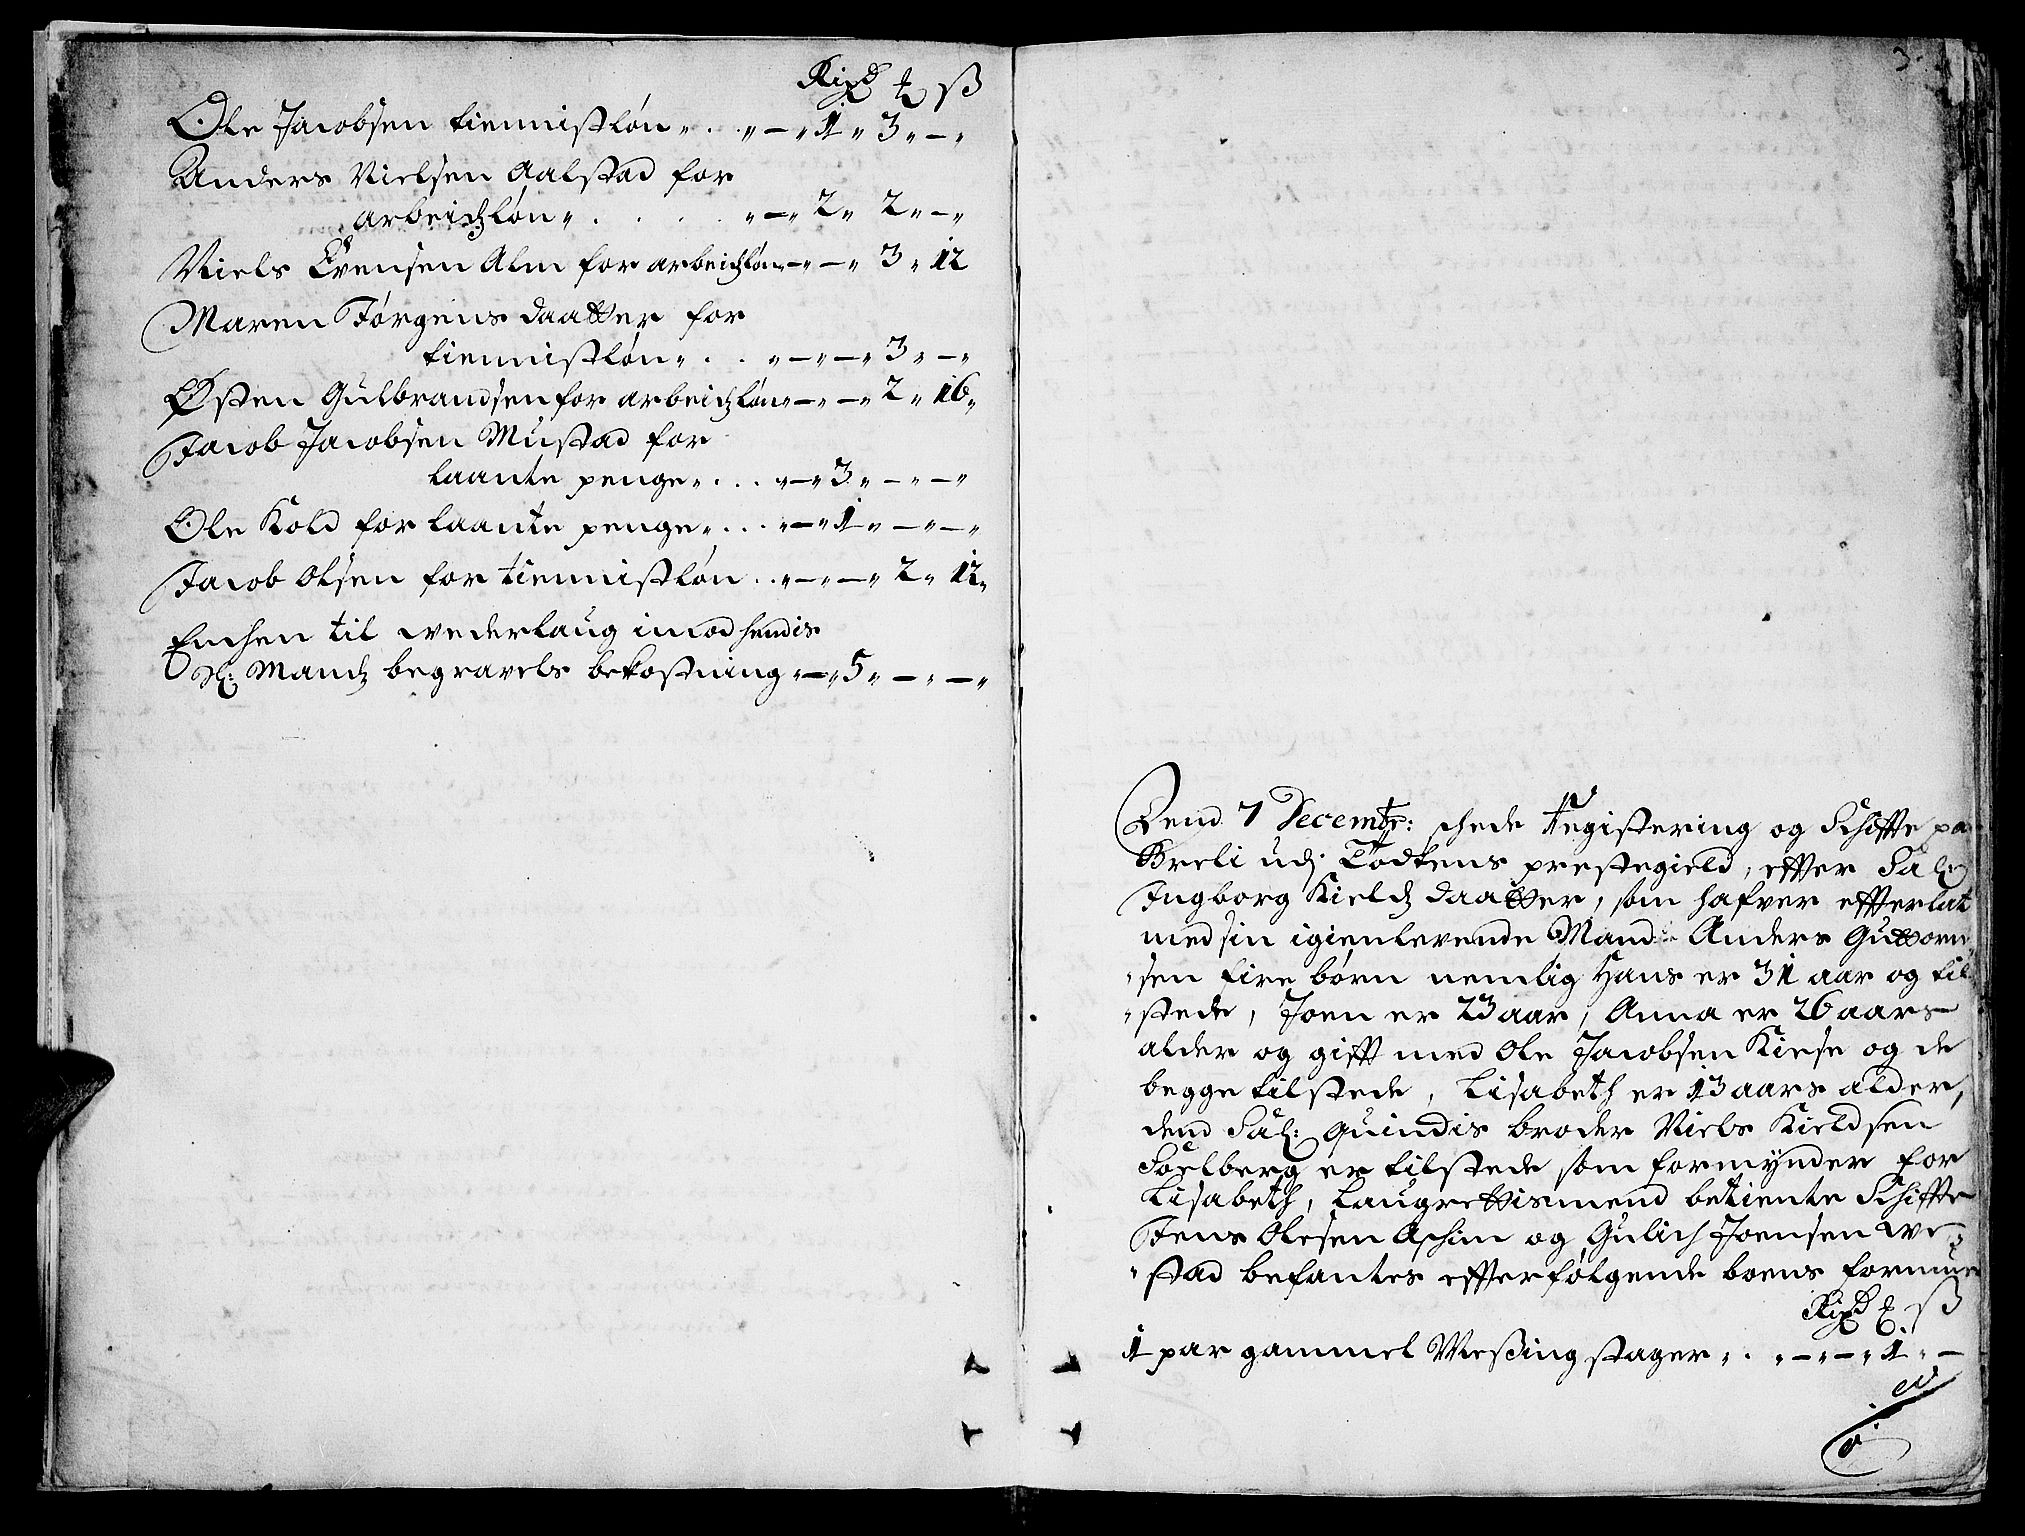 Rixd ₰ ß
Ole Jacobsen tiennistløn „ . . „ — „ 1 „ 3 „ — „
Anders Nielsen Aalstad for
arbeidzløn „ . . . . „ — „ 2 „ 2 „ — „
Niels Evensen Alm for arbeidzløn „ — „ — „ 3 „ 12
Maren Jørgens daatter for
tiennistløn „ . . „ — „ — „ 3 „ — „
Østen Gulbrandsen for arbeidzløn „ — „ — „ 2 „ 16 „
Jacob Jacobsen Mustad for
laante penge „ . . . „ — „ 3 „ — „ — „
Ole Kold for laante penge „ . . . „ — „ 1 „ — „ — „
Jacob Olsen for tiennistløn . . „ — „ — „ 2 „ 12 „
Enchen til wederlaug imod hendis
Sl: Mandz begravels bekostning „ — „ 5 „ — „ — „
3.
Dend 7 Decembr: skede Registering og Schiffte paa
Breli udj Todtens prestegield, effter Sal:
Ingborg Kieldz daatter, som hafver effterlat
med sin igienlevende Mand Anders Guttorm„
„sen fire børn nemlig Hans er 31 aar og til„
„stede, Joen er 23 aar, Anna er 26 aars
alder og gifft med Ole Jacobsen Kiese og de
begge tilstede, Lisabeth er 13 aars alder,
dend Sal: quindis broder Niels Kieldsen
Soelberg er tilstede som formynder for
Lisabeth, Laugrettismend betiente Schiffte
Jens Olesen Aschim og Gulich Joensen We„
„stad befantes effterfølgende boens formue
Rixd ₰ ß
1 par gammel Messing stager „ . „ — „ — „ 1 „ —